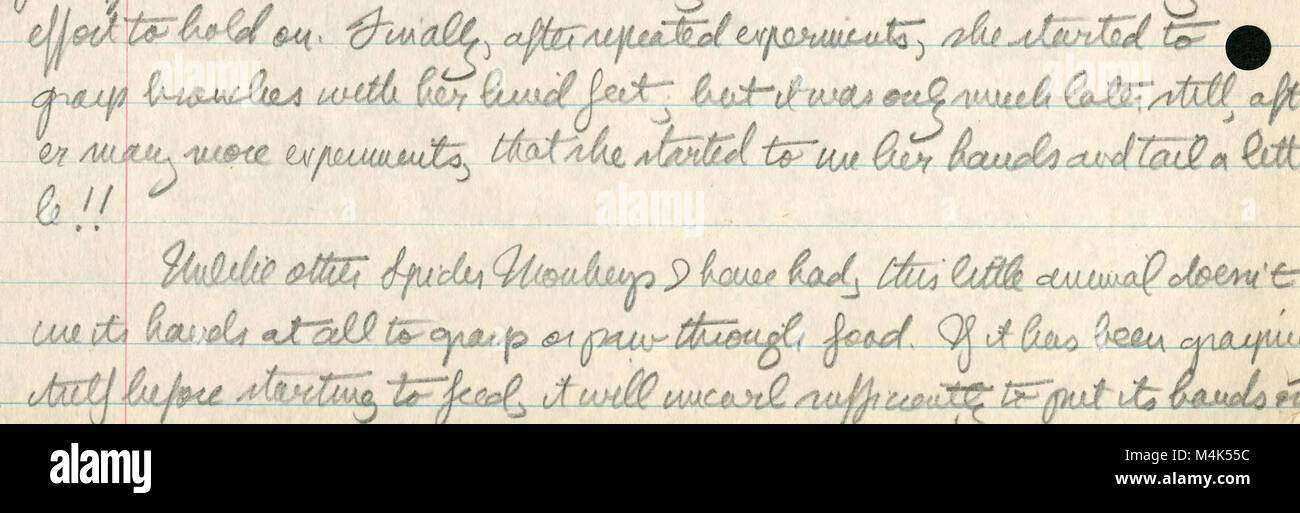 effort to hold on. Finally, after repeated experiments, she started to
grasp branches with her hind feet, but it was only much later still, aft
er many more experiments, that she started to use her hands and tail a litt
le!!
Unlike other Spider Monkeys I have had, this little animal doesn't
use its hands at all to grasp or paw through food. If it has been graspin
itself before starting to feed, it will uncurl sufficiently to put its hands on
alamy
Image ID: M4K55C
www.alamy.com